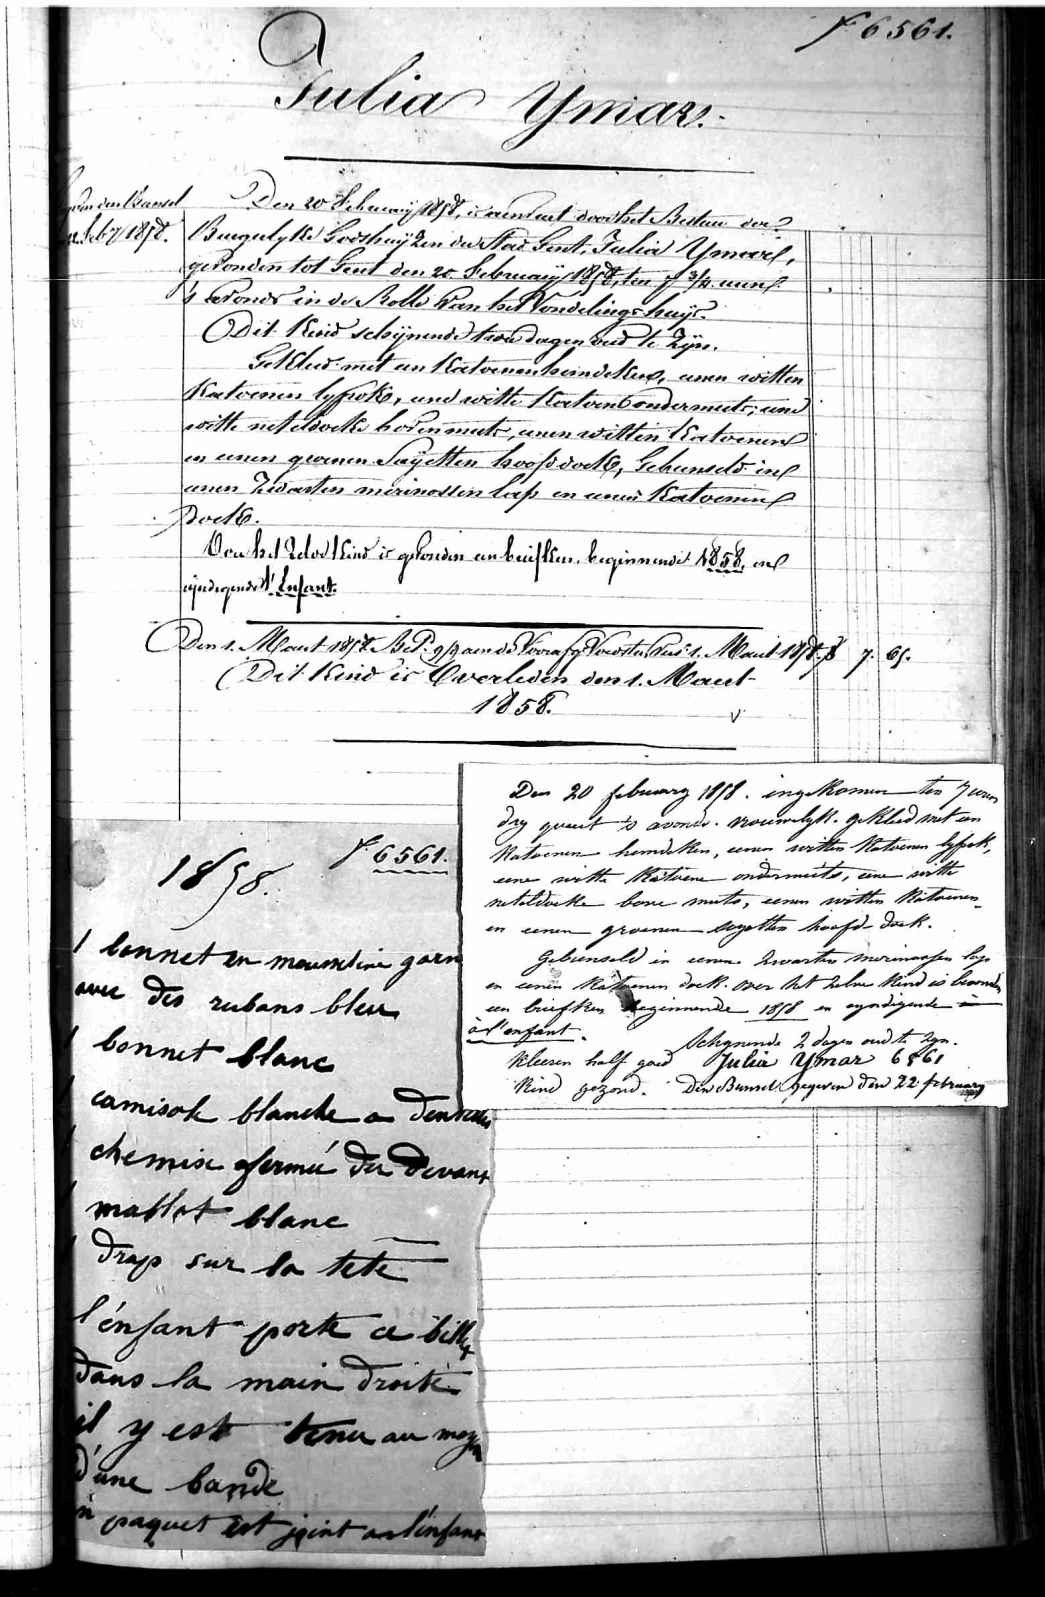 F 6561.
Julia Ymar.
Den 20 February 1858, is aenveert door het Bestuer der
Burgerlyke Godshuyzen der Stad Gent, Julia Ymar,
gevonden tot Gent den 20 February 1858, ten 7 3/4 uren
's avonds in de Rolle van het Vondelingshuys.
Dit Kind schynende twee dagen oud te zyn.
Gekleed met een Katoenen hemdeken, eenen witten
Katoenen lyfrok, eene witte Katoene ondermuts, eene
witte neteldoeke bovenmuts, eenen witten Katoenen
en eenen groenen Sayetten hoofddoek, Gebunseld in
eenen Zwarten merinossen lap en eenen Katoenen
doek.
Over het Zelve Kind is gevonden een briefken, beginnende 1858, en
eyndigende l'Enfant.
Den 1. Maert 1858 1. Maert 1858 7. 65.
Dit Kind is Overleden den 1. Maert
1858.
Den 20 february 1858. ingekomen ten 7 uren
dry quart 's avonds. vrouwelyk. gekleed met een
Katoenen hemdeken, eenen witten Katoenen lyfrok,
eene witte Katoene ondermuts, eene witte
neteldoeke bove muts, eenen witten Katoenen
en eenen groenen sayetten hoofd-doek.
Gebunseld in eenen Zwarten merinossen lap
en eenen Katoenen doek. over het Zelve Kind is bevonden
een briefken beginnende 1858 en eyndigende
à l'enfant.
Schynende 2 dagen oud te zyn.
Kleeren half goed Julia Ymar 6561
Kind gezond. Den Bunsel gegeven den 22 february
F 6561.
1858.
1 bonnet en mousseline garn
avec des rubans bleu
1 bonnet blanc
1 camisole blanche a dentelles
1 chemise fermée du devant
1 maillot blanc
1 drap sur la tete
l'énfant porte ce billet
dans la main droite
il y est tenu au moyen
d'une bande
un paquet est joint a l'énfant